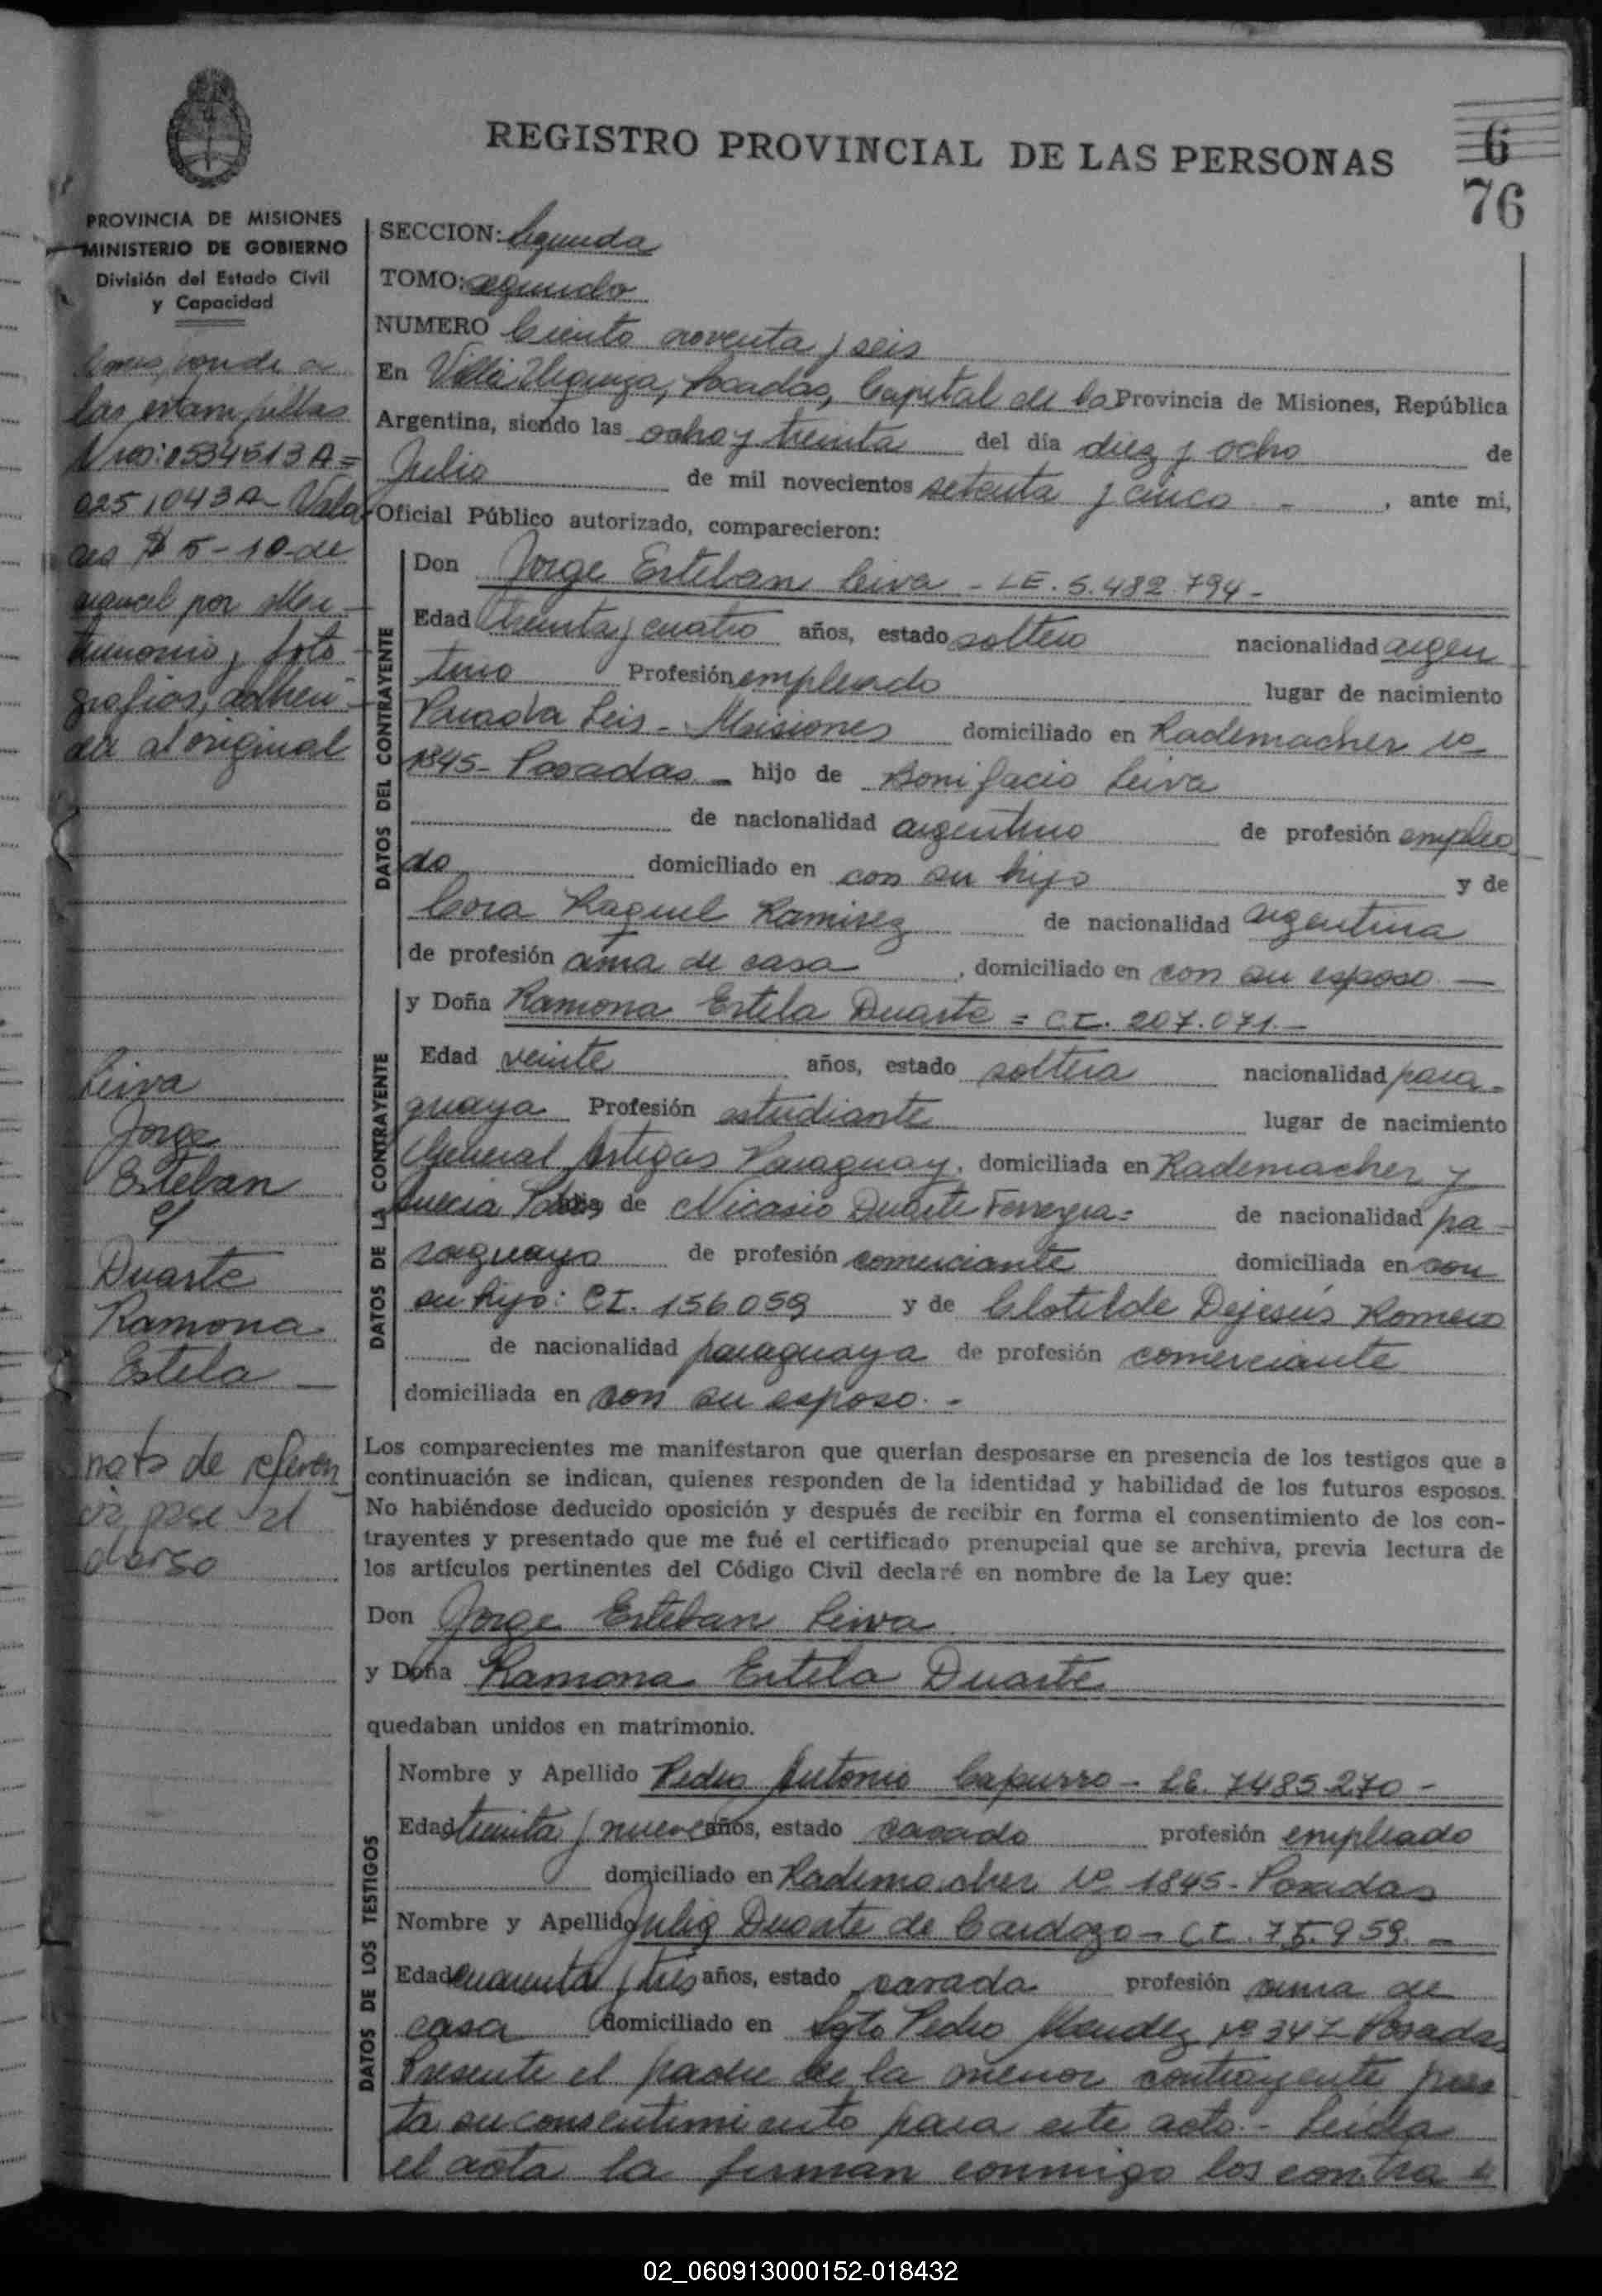 REGISTRO PROVINCIAL DE LAS PERSONAS
6
76
PROVINCIA DE MISIONES
MINISTERIO DE GOBIERNO
División del Estado Civil
y Capacidad
Corresponde a
las estampillas
Nros: 0534513 A=
0251043 A- Valo
res $ 5-10-de
arancel por Ma
trimonio y foto
grafias, adheri
das al original
Leiva
Jorge
Esteban
c/
Duarte
Ramona
Estela —
nota de referen
cia pase al
dorso
SECCION: Segunda
TOMO: segundo
NUMERO Ciento noventa y seis
En Villa Urquiza, Posadas, Capital de la Provincia de Misiones, República
Argentina, siendo las ocho y treinta del día diez y ocho de
Julio de mil novecientos setenta y cinco - , ante mi,
Oficial Público autorizado, comparecieron:
DATOS DEL CONTRAYENTE
Don Jorge Esteban Leiva - LE. 5.482.794-
Edad treinta y cuatro años, estado soltero nacionalidad argen
tino Profesión empleado lugar de nacimiento
Parada Leis - Misiones domiciliado en Rademacher Nº
1845- Posadas - hijo de Bonifacio Leiva
de nacionalidad argentino de profesión emplea
do domiciliado en con su hijo y de
Cora Raquel Ramirez de nacionalidad argentina
de profesión ama de casa , domiciliado en con su esposo. —
DATOS DE LA CONTRAYENTE
y Doña Ramona Estela Duarte = CI. 207.071.—
Edad veinte años, estado soltera nacionalidad para-
guaya Profesión estudiante lugar de nacimiento
General Artigas Paraguay. domiciliada en Rademacher y
Suecia de Nicasio Duarte Ferreyra= de nacionalidad pa
raguayo de profesión comerciante domiciliada en con
su hijo: CI. 156.059 y de Clotilde Dejesús Romero
de nacionalidad paraguaya de profesión comerciante
domiciliada en con su esposo. -
Los comparecientes me manifestaron que querían desposarse en presencia de los testigos que a
continuación se indican, quienes responden de la identidad y habilidad de los futuros esposos.
No habiéndose deducido oposición y después de recibir en forma el consentimiento de los con-
trayentes y presentado que me fué el certificado prenupcial que se archiva, previa lectura de
los artículos pertinentes del Código Civil declaré en nombre de la Ley que:
Don Jorge Esteban Leiva
y Doña Ramona Estela Duarte
quedaban unidos en matrimonio.
DATOS DE LOS TESTIGOS
Nombre y Apellido Pedro Antonio Capurro - LE. 7485.270 -
Edad treinta y nueve años, estado casado profesión empleado
domiciliado en Rademacher Nº 1845- Posadas
Nombre y Apellido Julia Duarte de Cardozo - CI. 75.959. -
Edad cuarenta y tres años, estado casada profesión ama de
casa domiciliado en Sgto Pedro Mendez Nº 347 Posadas
Presente el padre de la menor contrayente pres
ta su consentimiento para este acto.- Leida
el acta la firman conmigo los contra
02_060913000152-018432